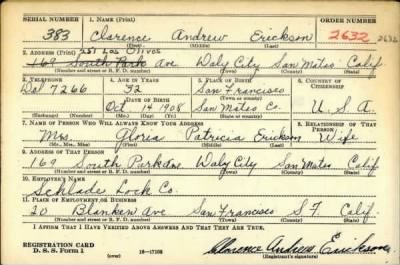 SERIAL NUMBER 1. NAME (Print) ORDER NUMBER
383 Clarence Andrew Erickson 2632 2632
(First) (Middle) (Last)
2. ADDRESS (Print) 251 Los Olivos
169 South Park Ave Daly City San Mateo Calif
(Number and street or R. F. D. number) (Town) (County) (State)
3. TELEPHONE 4. AGE IN YEARS 5. PLACE OF BIRTH 6. COUNTRY OF CITIZENSHIP
Del 7266 32 San Francisco
DATE OF BIRTH (Town or county)
Oct 14 1908 San Mateo Co. U. S. A.
(Exchange) (Number) (Mo.) (Day) (Yr.) (State or country)
7. NAME OF PERSON WHO WILL ALWAYS KNOW YOUR ADDRESS 8. RELATIONSHIP OF THAT PERSON
Mrs. Gloria Patricia Erickson Wife
(Mr., Mrs., Miss) (First) (Middle) (Last)
9. ADDRESS OF THAT PERSON
169 South Park Ave Daly City San Mateo Calif.
(Number and street or R. F. D. number) (Town) (County) (State)
10. EMPLOYER'S NAME
Schlade Lock Co.
11. PLACE OF EMPLOYMENT OR BUSINESS
20 Blanken Ave San Francisco S F. Calif.
(Number and street or R. F. D. number) (Town) (County) (State)
I AFFIRM THAT I HAVE VERIFIED ABOVE ANSWERS AND THAT THEY ARE TRUE.
REGISTRATION CARD
D. S. S. Form 1 16—17105 Clarence Andrew Erickson
(over) (Registrant's signature)